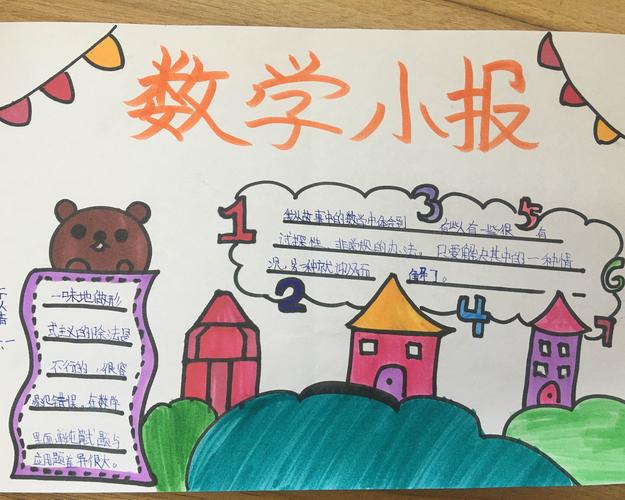 数学小报
1 3 5
我从故事中的数学中体会到 有些人有一些很 有
试探性、非常规的办法。只要解决其中的一种情
况,另一种就迎刃而 解了。
6
2 4 7
一味地做形
式主义的 除法是
不行的，很容
易犯错误。在数学
里面 试题与
应用题差异很大。